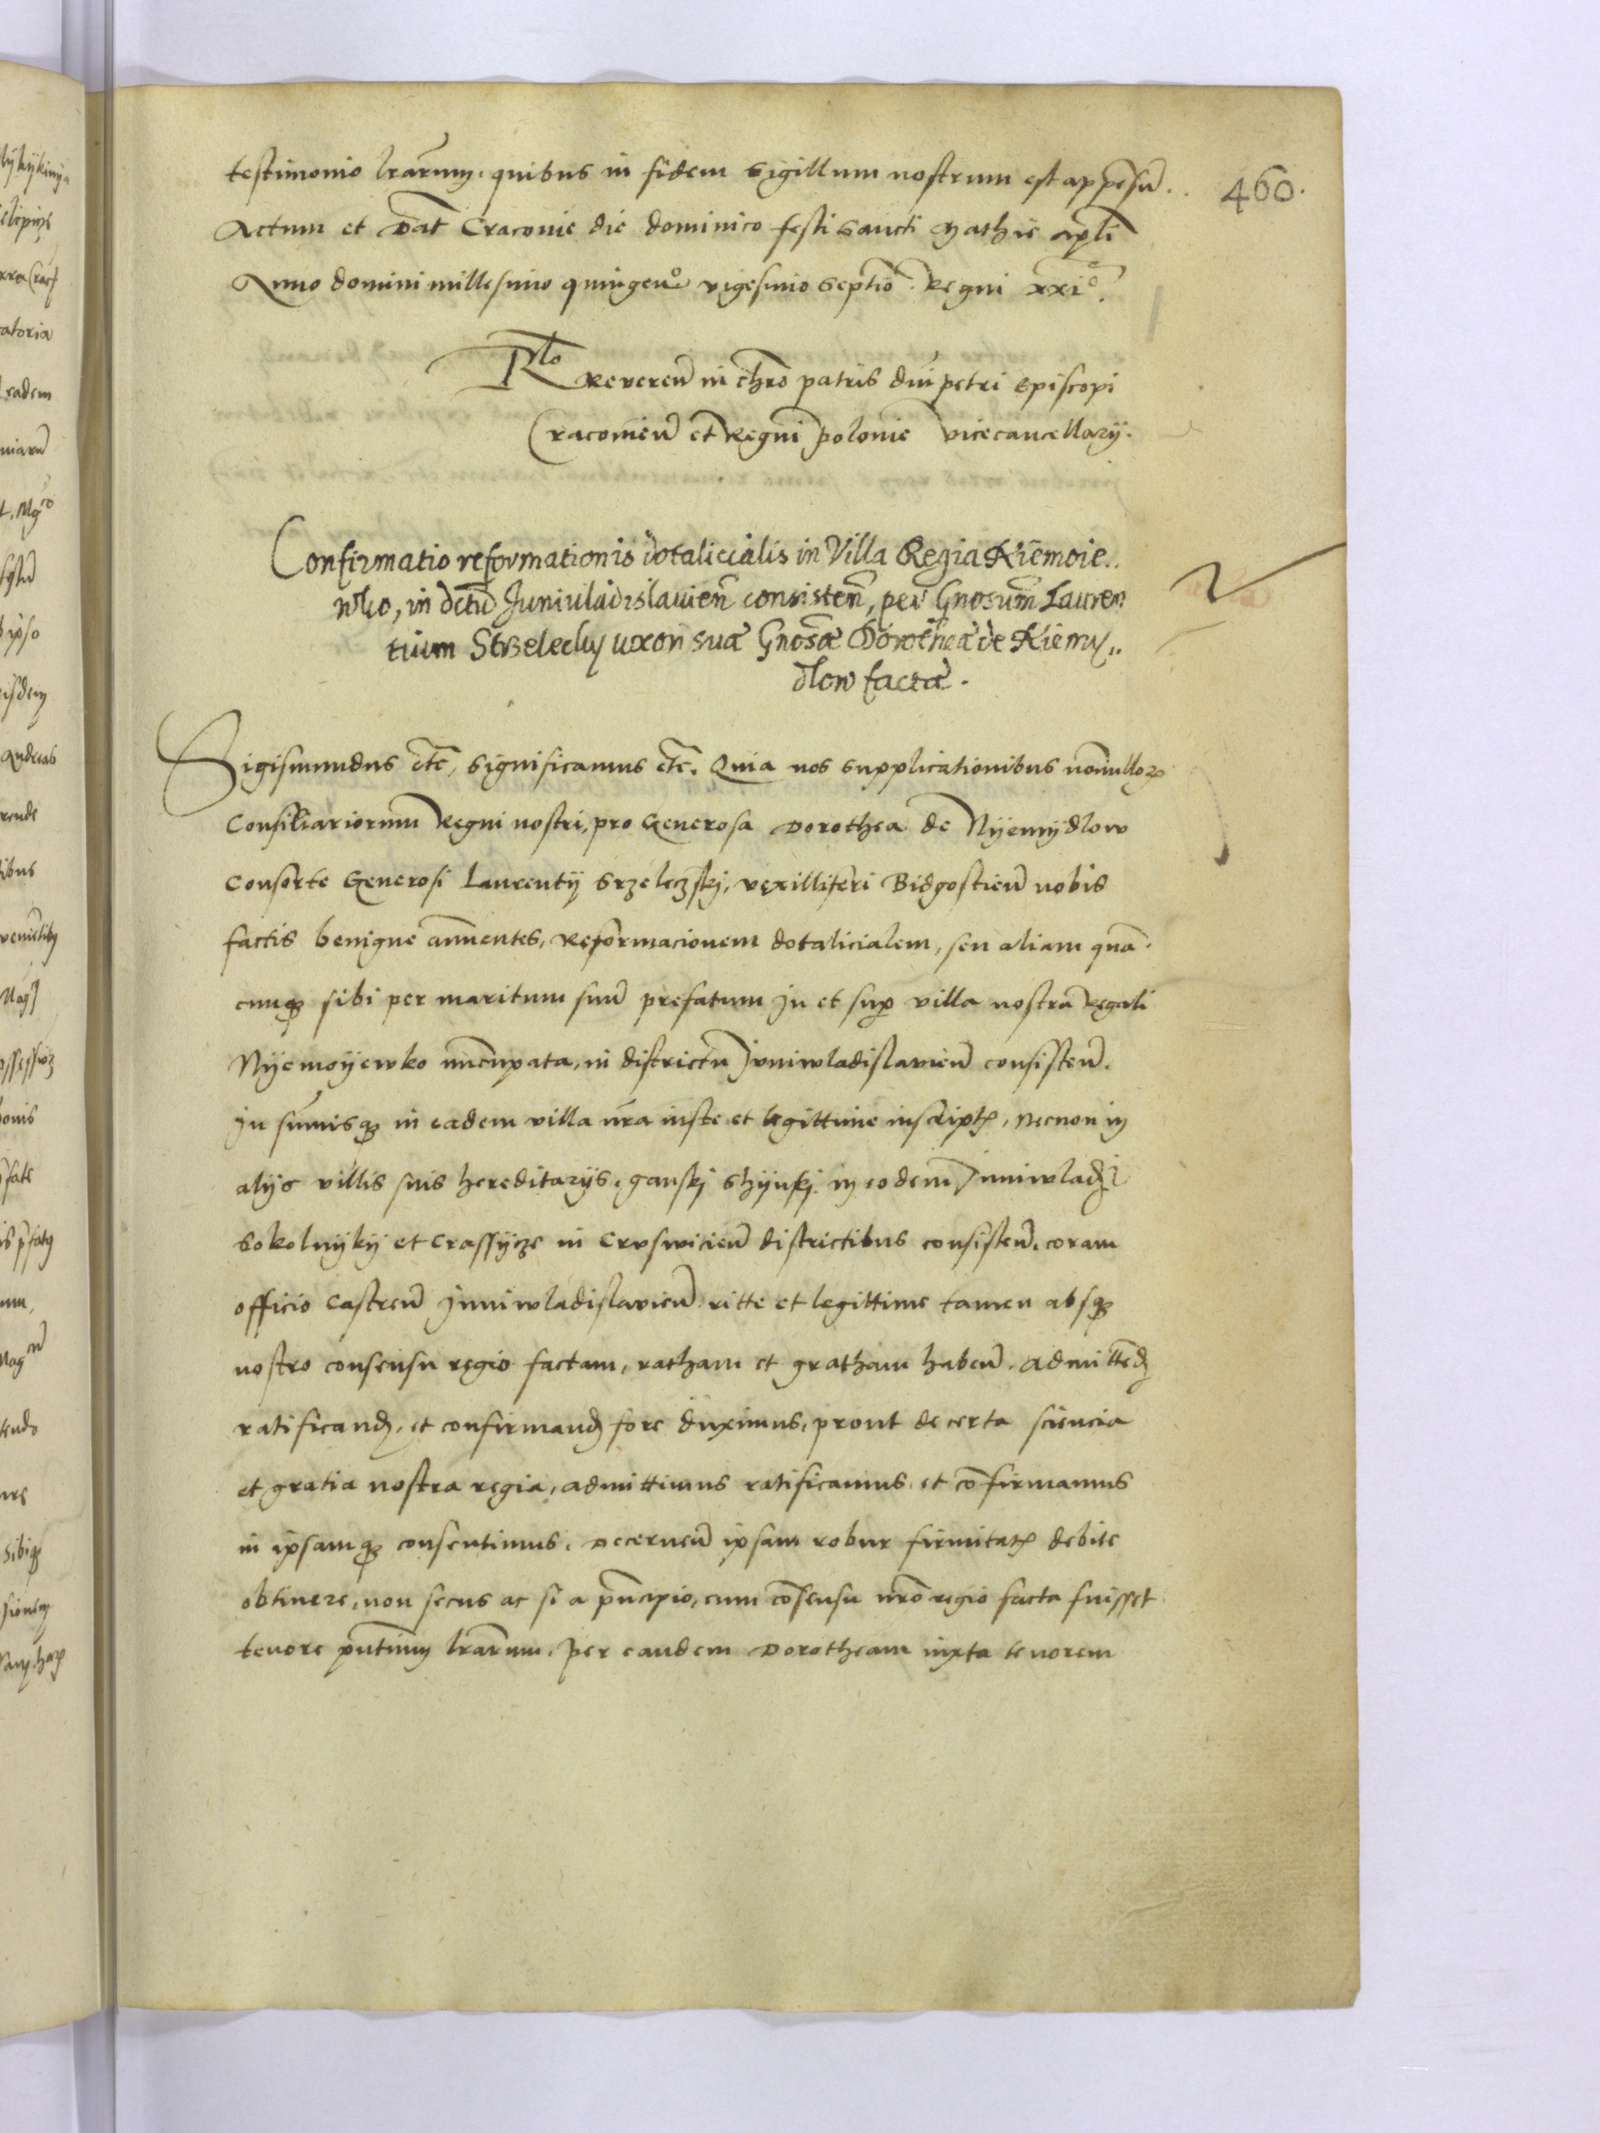 testimonio lrarum. quibus in fidem sigillum nostrum est appensũ. 460.
Actum et Dat Cracovie die dominico festi sancti Mathie apli
Anno domini millesimo quingenº vigesimo septīo. Regni xxiº.
Rlo Reverenđ in chro patris dñi petri Episcopi
Cracovieñ et Regni polonie vicecancellarÿ.
Confirmatio reformationis dotalicialis in Villa Regia Niemoie..
wko, in dctũ Juniuladislavieñ consisteñ, per Gnosum̃ Lauren
tium Strzelecky uxori suæ Gnosæ Dorotheæ de Niemy..
dlow factæ.
Sigismundus etc, significamus etc. Quia nos supplicationibus nonnulloꝝ
Consiliariorum Regni nostri, pro Generosa Dorothea de Nyemydlow
Consorte Generosi Laurentÿ Srzeleczskj, vexilliferi Bidgostieñ nobis
factis benigne annuentes, Reformacionem dotalicialem, seu aliam quã
cunqꝫ sibi per maritum suũ prefatum in et supꝑ villa nostra Regali
Nyemoyewko nuncupata, in districtu Juniwladislavieñ consisteñ.
In summisqꝫ in eadem villa nrã iuste et legittime inscriptꝭ, necnon in
alÿs villis suis hereditarÿs. ganskj in eodem Juniwladꝭ
Sokolnyky et Crassÿcze in Crvswicieñ districtibus consisteñ. coram
officio Castreñ Juniwladislavieñ ritte et legittime tamen absqꝫ
nostro consensu regio factam, ratham et gratham habeñ. admittenđ
ratificanđ. et confirmanđ fore duximus, prout de certa sciencia
et gratia nostra regia, admittimus ratificamus et cōfirmamus
in ipsamqꝫ consentimus. Decerneñ ipsam robur firmitatꝭ debite
obtinere, non secus ac si a pñcipio, cum cōsensu nrõ regio facta fuisset
tenore pñtium lrarum. Per eandem Dorotheam iuxta tenorem